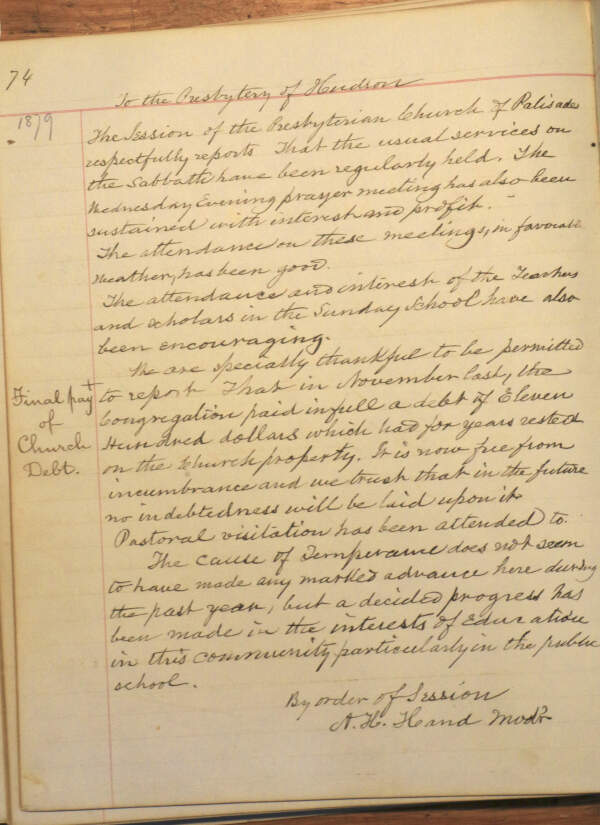 74
To the Presbytery of Hudson
1879
The Session of the Presbyterian Church of Palisades
respectfully reports That the usual services on
the Sabbath have been regularly held. The
Wednesday Evening prayer meeting has also been
sustained with interest and profit.
The attendance on these meetings, in favorable
weather, has been good.
The attendance and interest of the Teachers
and scholars in the Sunday School have also
been encouraging.
We are specially thankful to be permitted
to report That in November last, the
Final payt
of
Church
Debt.
Congregation paid in full a debt of Eleven
Hundred dollars which had for years rested
on the Church property. It is now free from
incumbrance and we trust that in the future
no indebtedness will be laid upon it.
Pastoral visitation has been attended to.
The cause of Temperance does not seem
to have made any marked advance here during
the past year, but a decided progress has
been made in the interests of Education
in this community particularly in the public
school.
By order of Session
A. H. Hand Modr.